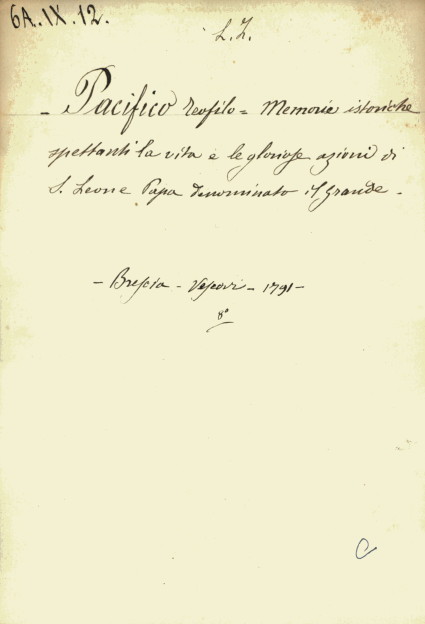 6A.IX.12.
L.Z.
- Pacifico Teofilo = Memorie istoriche
spettanti la vita e le gloriose azioni di
S. Leone Papa denominato il Grande -
- Brescia - Vescovi - 1791 -
8°
C